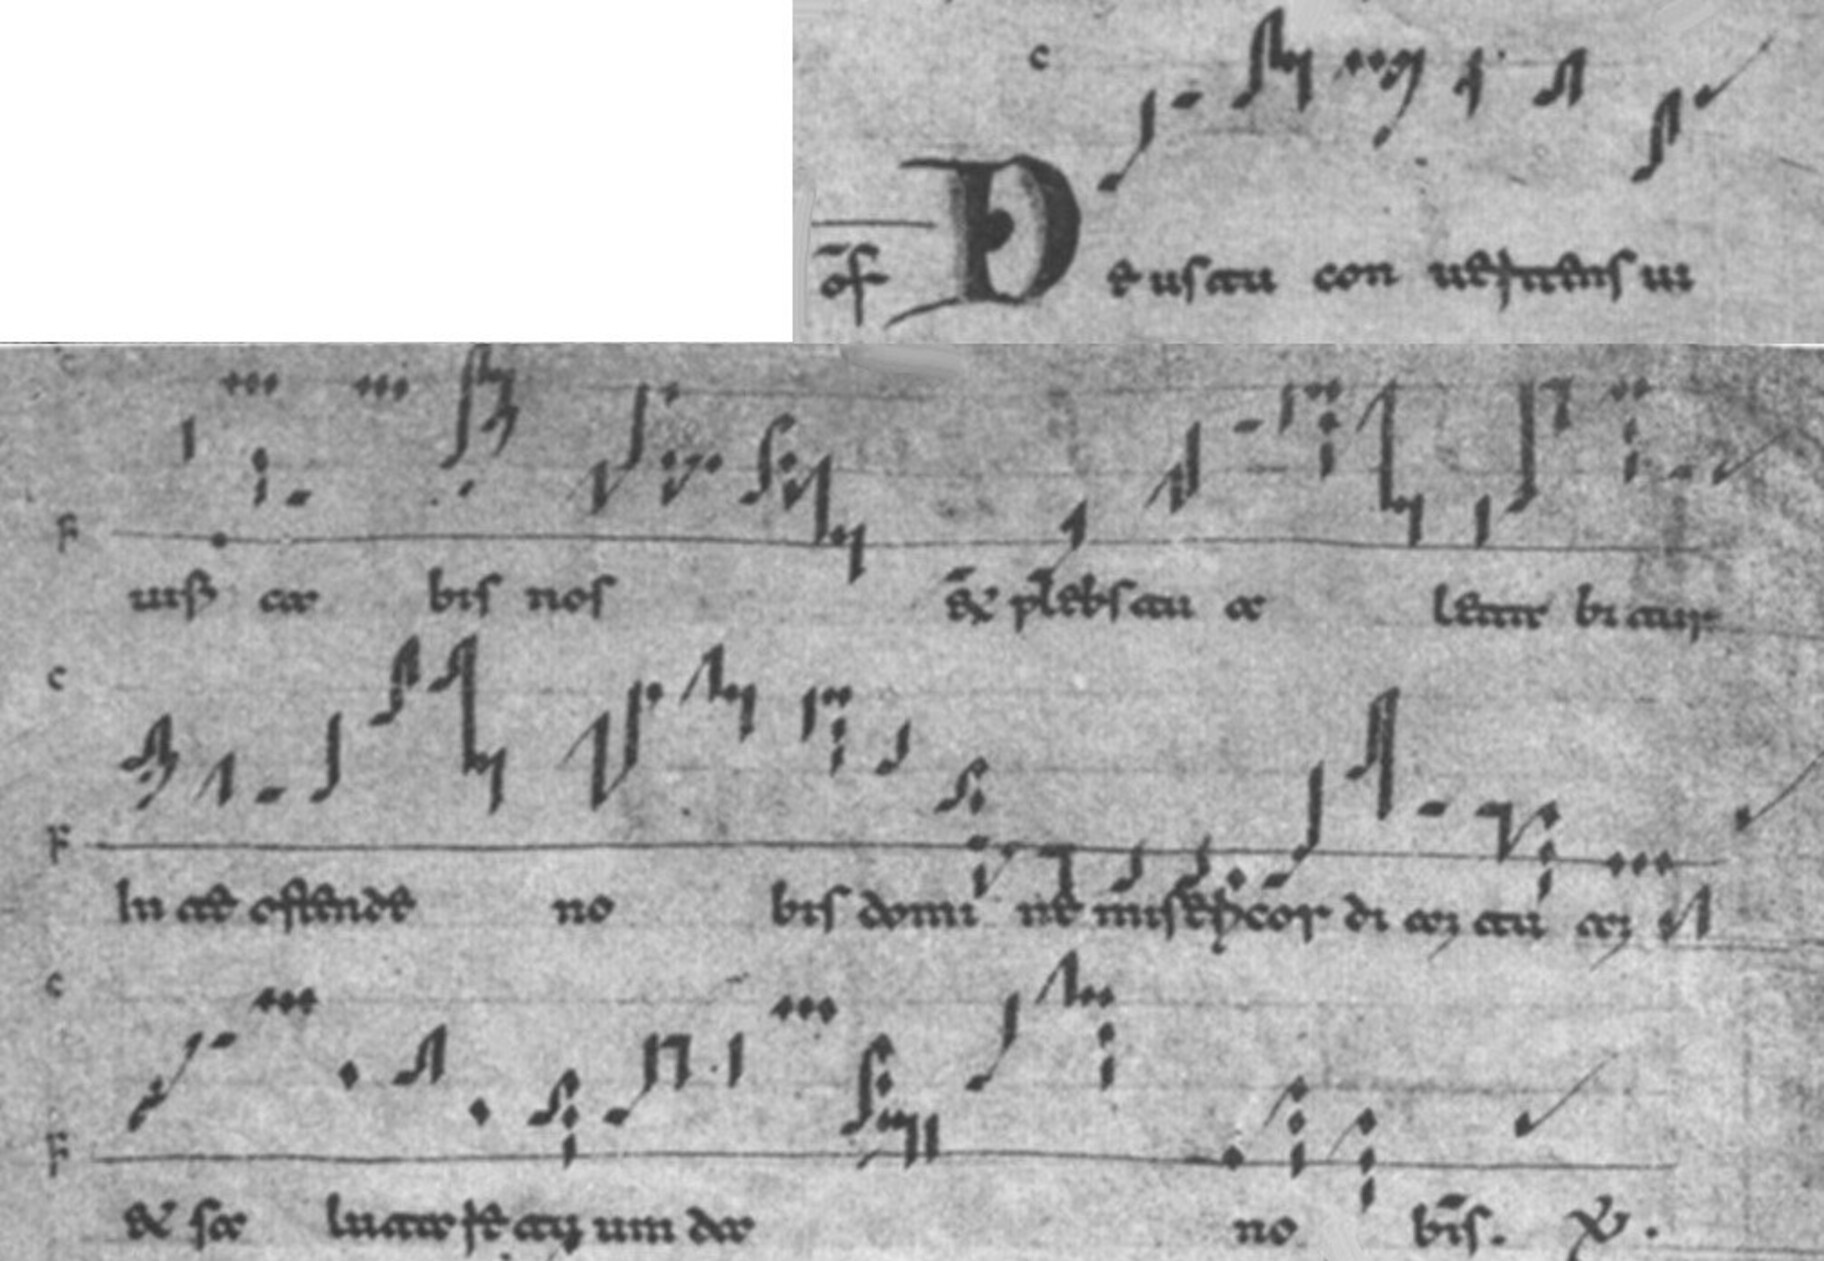 c
of D e us tu con uertens ui
c
F
uifi ca bis nos & plebs tu a leta bi tur
c
F
In te ostende no bis domi ne misericor di am tu am
c
F
& sa lutare tuum da no bis.